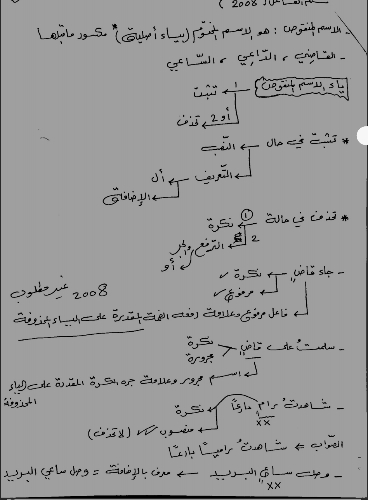 ( 2008 )
الاسم المنقوص : هو الاسم المختوم (بياء أصلية) * مكسور ما قبلها
- القاضي ، الداعي ، الساعي
ياء الاسم المنقوص ← 1 تثبت
أو 2 تحذف
* تثبت في حال ← النصب
← التعريف ← أل
← الإضافة
* تحذف في حالة ← ① نكرة
2 الرفع والجر
أو
- جاء قاضٍ ← نكرة ✓
← مرفوع ✓
غير مطلوب 2008
← فاعل مرفوع وعلامة رفعه الضمة المقدرة على الياء المحذوفة
- سلمت على قاضٍ نكرة
مجرورة
← اسم مجرور وعلامة جره الكسرة المقدرة على الياء المحذوفة
- شاهدت رامٍ بارعًا ← نكرة
xx
← منصوب ✓ (لا تحذف)
الصواب ← شاهدت راميًا بارعًا
- وصل ساعٍ البريد ← معرف بالإضافة = وصل ساعي البريد
xx